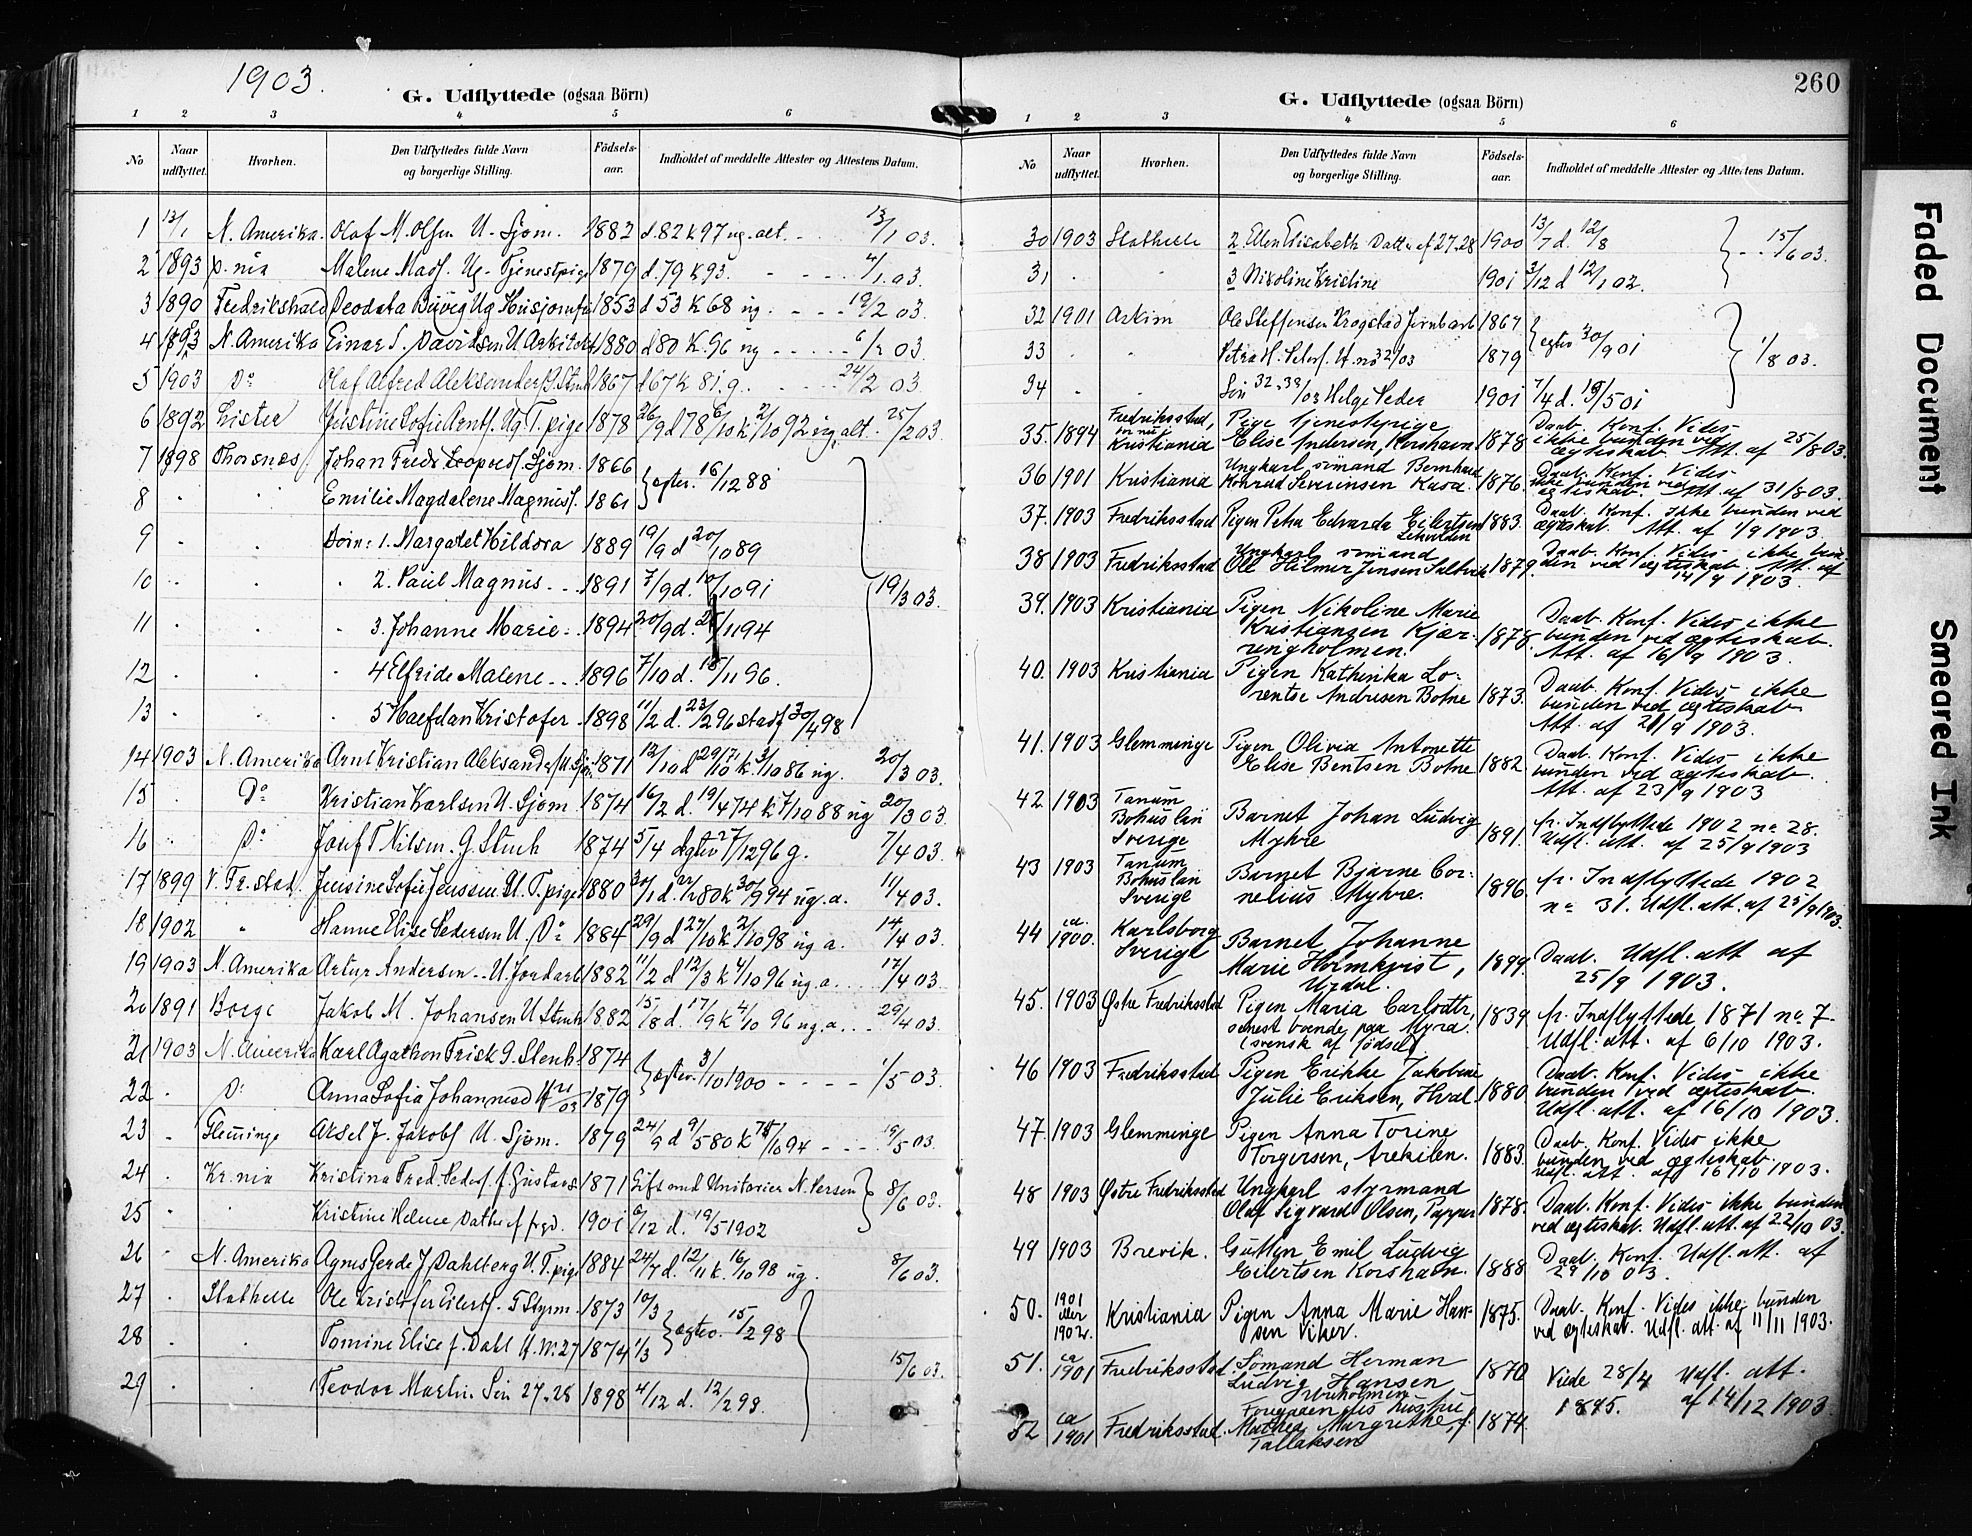 1903.
G. Udflyttede (ogsaa Börn)
1 2 3 4 5 6
No Naar udflyttet. Hvorhen. Den Udflyttedes fulde Navn og borgerlige Stilling. Födsels-aar. Indholdet af meddelte Attester og Attestens Datum.
1 13/1 N. Amerika. Olaf M. Olsen U. Sjöm. 1882 d. 82 k 97 ug. alt. 13/1 03.
2 1893 Kr. nia Malene Mads. Ug. Tjenestpige 1879 d. 79 k 93. 4/1 03.
3 1890 Fredrikshald Deodata Ug Husjomfr 1853 d 53 k 68 ug. 19/2 03.
4 1893 N. Amerika Einar S. Davidsen U. Arkitekt 1880 d 80 k. 96 ug 6/2 03.
5 1903 Do Olaf Alfred Aleksanders. G. Stenh 1867 d 67 k 81. g. 24/2 03.
6 1892 Lister Sofie Ug T. pige 1878 26/9 d 78 6/10 k 2/10 92 ug. alt. 25/2 03
7 1898 Thorsnes Johan Fredr. Leopolds. Sjöm. 1866 } egtev. 16/12 88
8 " " Emilie Magdalene Magnus. 1861
9 " Börn: 1. Margaret Hildora 1889 19/9 d 20/10 89
10 " " 2. Paul Magnus 1891 7/9 d. 10/10 91 19/3 03.
11 " " 3. Johanne Marie 1894 20/9 d. 25/11 94
12 " " 4 Elfride Malene 1896 7/10 d. 15/11 96.
13 " " 5 Haefdan Kristofer 1898 11/2 d. 23/2 96 stadf 30/4 98
14 1903 N. Amerika Arnt Kristian Aleksanders. U. Sjöm. 1871 12/10 d 29/10 71 k. 3/10 86 ug. 20/3 03.
15 " Do Kristian Karlsen U. Sjöm. 1874 16/2 d. 19/4 74 k 7/10 88 ug 20/3 03.
16 " Do Josef T Nilsen. G. Stenh 1874 5/4 egtev 27/12 96 g. 7/4 03.
17 1899 V. Fr. stad. Jensine Sofie Jenssen U. T. pige 1880 30/1 d. 22/2 80 k 30/9 94 ug. a. 11/4 03.
18 1902 " Hanne Elise Pedersen U. Do 1884 29/9 d 27/10 k 2/10 98 ug a. 14/4 03.
19 1903 N. Amerika Artur Andersen U. Jordarb 1882 11/2 d 12/3 k 4/10 96 ug. a. 17/4 03.
20 1891 Borge Jakob M. Johansen U Stenh 1882 15/8 d. 17/9 k 4/10 96 ug. a. 29/4 03.
21 1903 N. Amerika Karl Agathon Frisk G. Stenh. 1874 } egtev. 3/10 1900 1/5 03.
22 " Do Anna Sofia Johannesd H 21/03 1879
23 " Glemminge Aksel J. Jakobs U. Sjöm. 1879 24/9 d 9/5 80 k 7/10 94 19/5 03.
24 " Kr. nia Kristina Fred. Peders. f. Gustavs 1871 Gift med Unitarier N. Persen 8/6 03.
25 " " Kristine Helene Datter af forgd. 1901 6/12 d. 19/5 1902
26 " N. Amerika Agnes Gerda J. Dahlberg U. T. pige 1884 24/7 d. 12/11 k. 16/10 98 ug. 8/6 03.
27 " Stathelle Ole Kristofer Eilerts. G Styrm. 1873 10/3 } egtev. 15/2 98
28 " " Tomine Elise f. Dahl H. No 27 1874 1/3 15/6 03.
29 " " Teodor Martin Sön 27, 28 1898 4/12 d. 12/2 98.
260
G. Udflyttede (ogsaa Börn)
1 2 3 4 5 6
No Naar udflyttet. Hvorhen. Den Udflyttedes fulde Navn og borgerlige Stilling. Födsels-aar. Indholdet af meddelte Attester og Attestens Datum.
30 1903 Stathelle 2. Ellen Elisabeth Datter af 27, 28 1900 13/7 d. 12/8 15/6 03.
31 " " 3 Nikoline Kristine 1901 3/12 d 12/1 02.
32 1901 Askim Ole Steffensen Krogstad Jernbarb 1867 } egtev 30/9 01
33 " " Petra H. Peders. H. no 32/03 1879 1/8 03.
34 " " Sön 32, 33/03 Helge Peder 1901 7/4 d. 19/5 01
35. 1894 Fredriksstad, nu Kristiania Pige tjenestepige Elise Andersen, Korshavn 1878 Daab. Konf. Vides ikke bunden ved ægteskab. Att. af 25/8 03.
36 1901 Kristiania Ungkarl sömand Bernhard Konrad Severinsen Kasa 1876. Daab. Konf. Vides ikke bunden ved ægteskab. Att. af 31/8 03.
37. 1903 Fredriksstad Pigen Petra Edvarda Eilertsen 1883. Daab. Konf. Ikke bunden ved ægteskab. Att. af 1/9 1903.
38 1903 Fredriksstad Ungkarl sömand Ole Hilmer Jensen Saltvik 1879. Daab. Konf. Vides ikke bunden ved ægteskab. Att. af 14/9 1903.
39. 1903 Kristiania Pigen Nikoline Marie Kristiansen Kjærringholmen. 1878. Daab. Konf. Vides ikke bunden ved ægteskab. Att. af 16/9 1903.
40. 1903 Kristiania Pigen Kathinka Lorentse Andresen Botne 1873. Daab. Konf. Vides ikke bunden ved ægteskab. Att. af 21/9 1903.
41. 1903 Glemminge Pigen Olivia Antonette Elise Bentsen Botne 1882 Daab. Konf. Vides ikke bunden ved ægteskab. Att. af 23/9 1903
42 1903 Tanum Bohuslän Sverige Barnet Johan Ludvig Myhre 1891. fr. Indflyttede 1902 no 28. Udfl. att. af 25/9 1903
43 1903 Tanum Bohuslän Sverige Barnet Bjarne Cornelius Myhre. 1896. fr. Indflyttede 1902 no 31. Udfl. att. af 25/9 1903.
44 ca. 1900. Karlsborg Sverige Barnet Johanne Marie Holmkvist, Urdal. 1899. Daab. Udfl. att af 25/9 1903.
45. 1903 Østre Fredriksstad Pigen Maria Carlsdtr, senest boende paa Myra. (svensk af fødsel) 1839 fr. Indflyttede 1871 no 7. Udfl. att. af 6/10 1903.
46 1903 Fredriksstad Pigen Erikke Jakobine Julie Eriksen, Hval. 1880 Daab. Konf. Vides ikke bunden ved ægteskab. Udfl. att. af 16/10 1903.
47. 1903 Glemminge Pigen Anna Torine Torgersen, Arekilen. 1883. Daab. Konf. Vides ikke bunden ved ægteskab. Udfl. att. af 16/10 1903.
48 1903 Østre Fredriksstad Ungkarl styrmand Olaf Sigvard Olsen, Papper 1878. Daab. Konf. Vides ikke bunden ved ægteskab. Udfl. att. af 22/10 03.
49 1903 Brevik. Gutten Emil Ludvig Eilertsen Korshavn. 1888 Daab. Konf. Udfl. att. af 29/10 03.
50. 1901 eller 1902. Kristiania Pigen Anna Marie Hansen Viker. 1875. Daab. Konf. Vides ikke bunden ved ægteskab. Udfl. att. af 11/11 1903.
51. ca 1901 Fredriksstad Sömand Herman Ludvig Hansen 1870 Viede 28/4 1895. Udfl. att. af 14/12 1903
52 ca 1901 Fredriksstad. Foregaaendes hustru Mathea Margrethe, f. Tallaksen 1874.
Faded Document
Smeared Ink